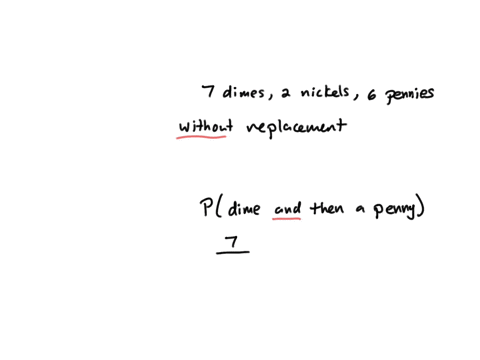 7 dimes, 2 nickels, 6 pennies
without replacement
P(dime and then a penny)
7